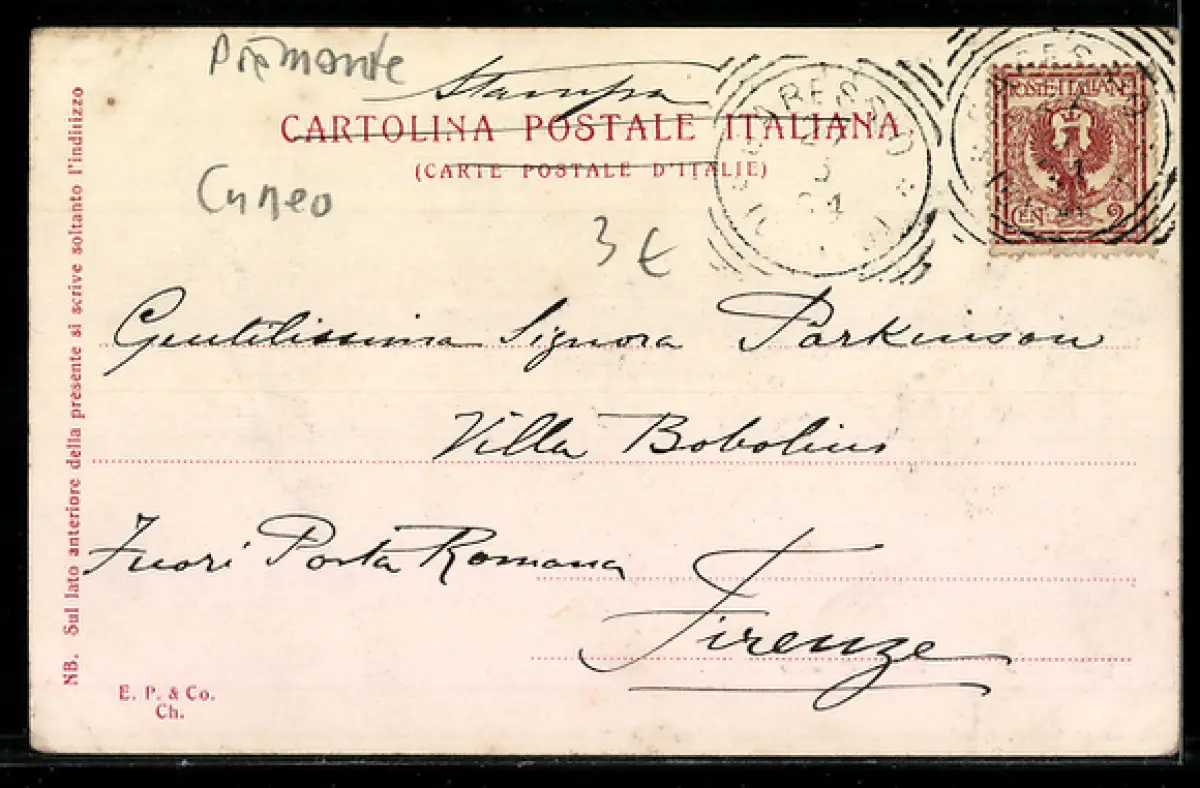 Piemonte
Stampa
CARTOLINA POSTALE ITALIANA
(CARTE POSTALE D'ITALIE)
Cuneo
3 €
POSTE·ITALIANE
CEN 2
Gentilissima Signora Parkinson
Villa Bobolius
Fuori Porta Romana
Firenze
NB. Sul lato anteriore della presente si scrive soltanto l'inditizzo
E. P. & Co.
Ch.